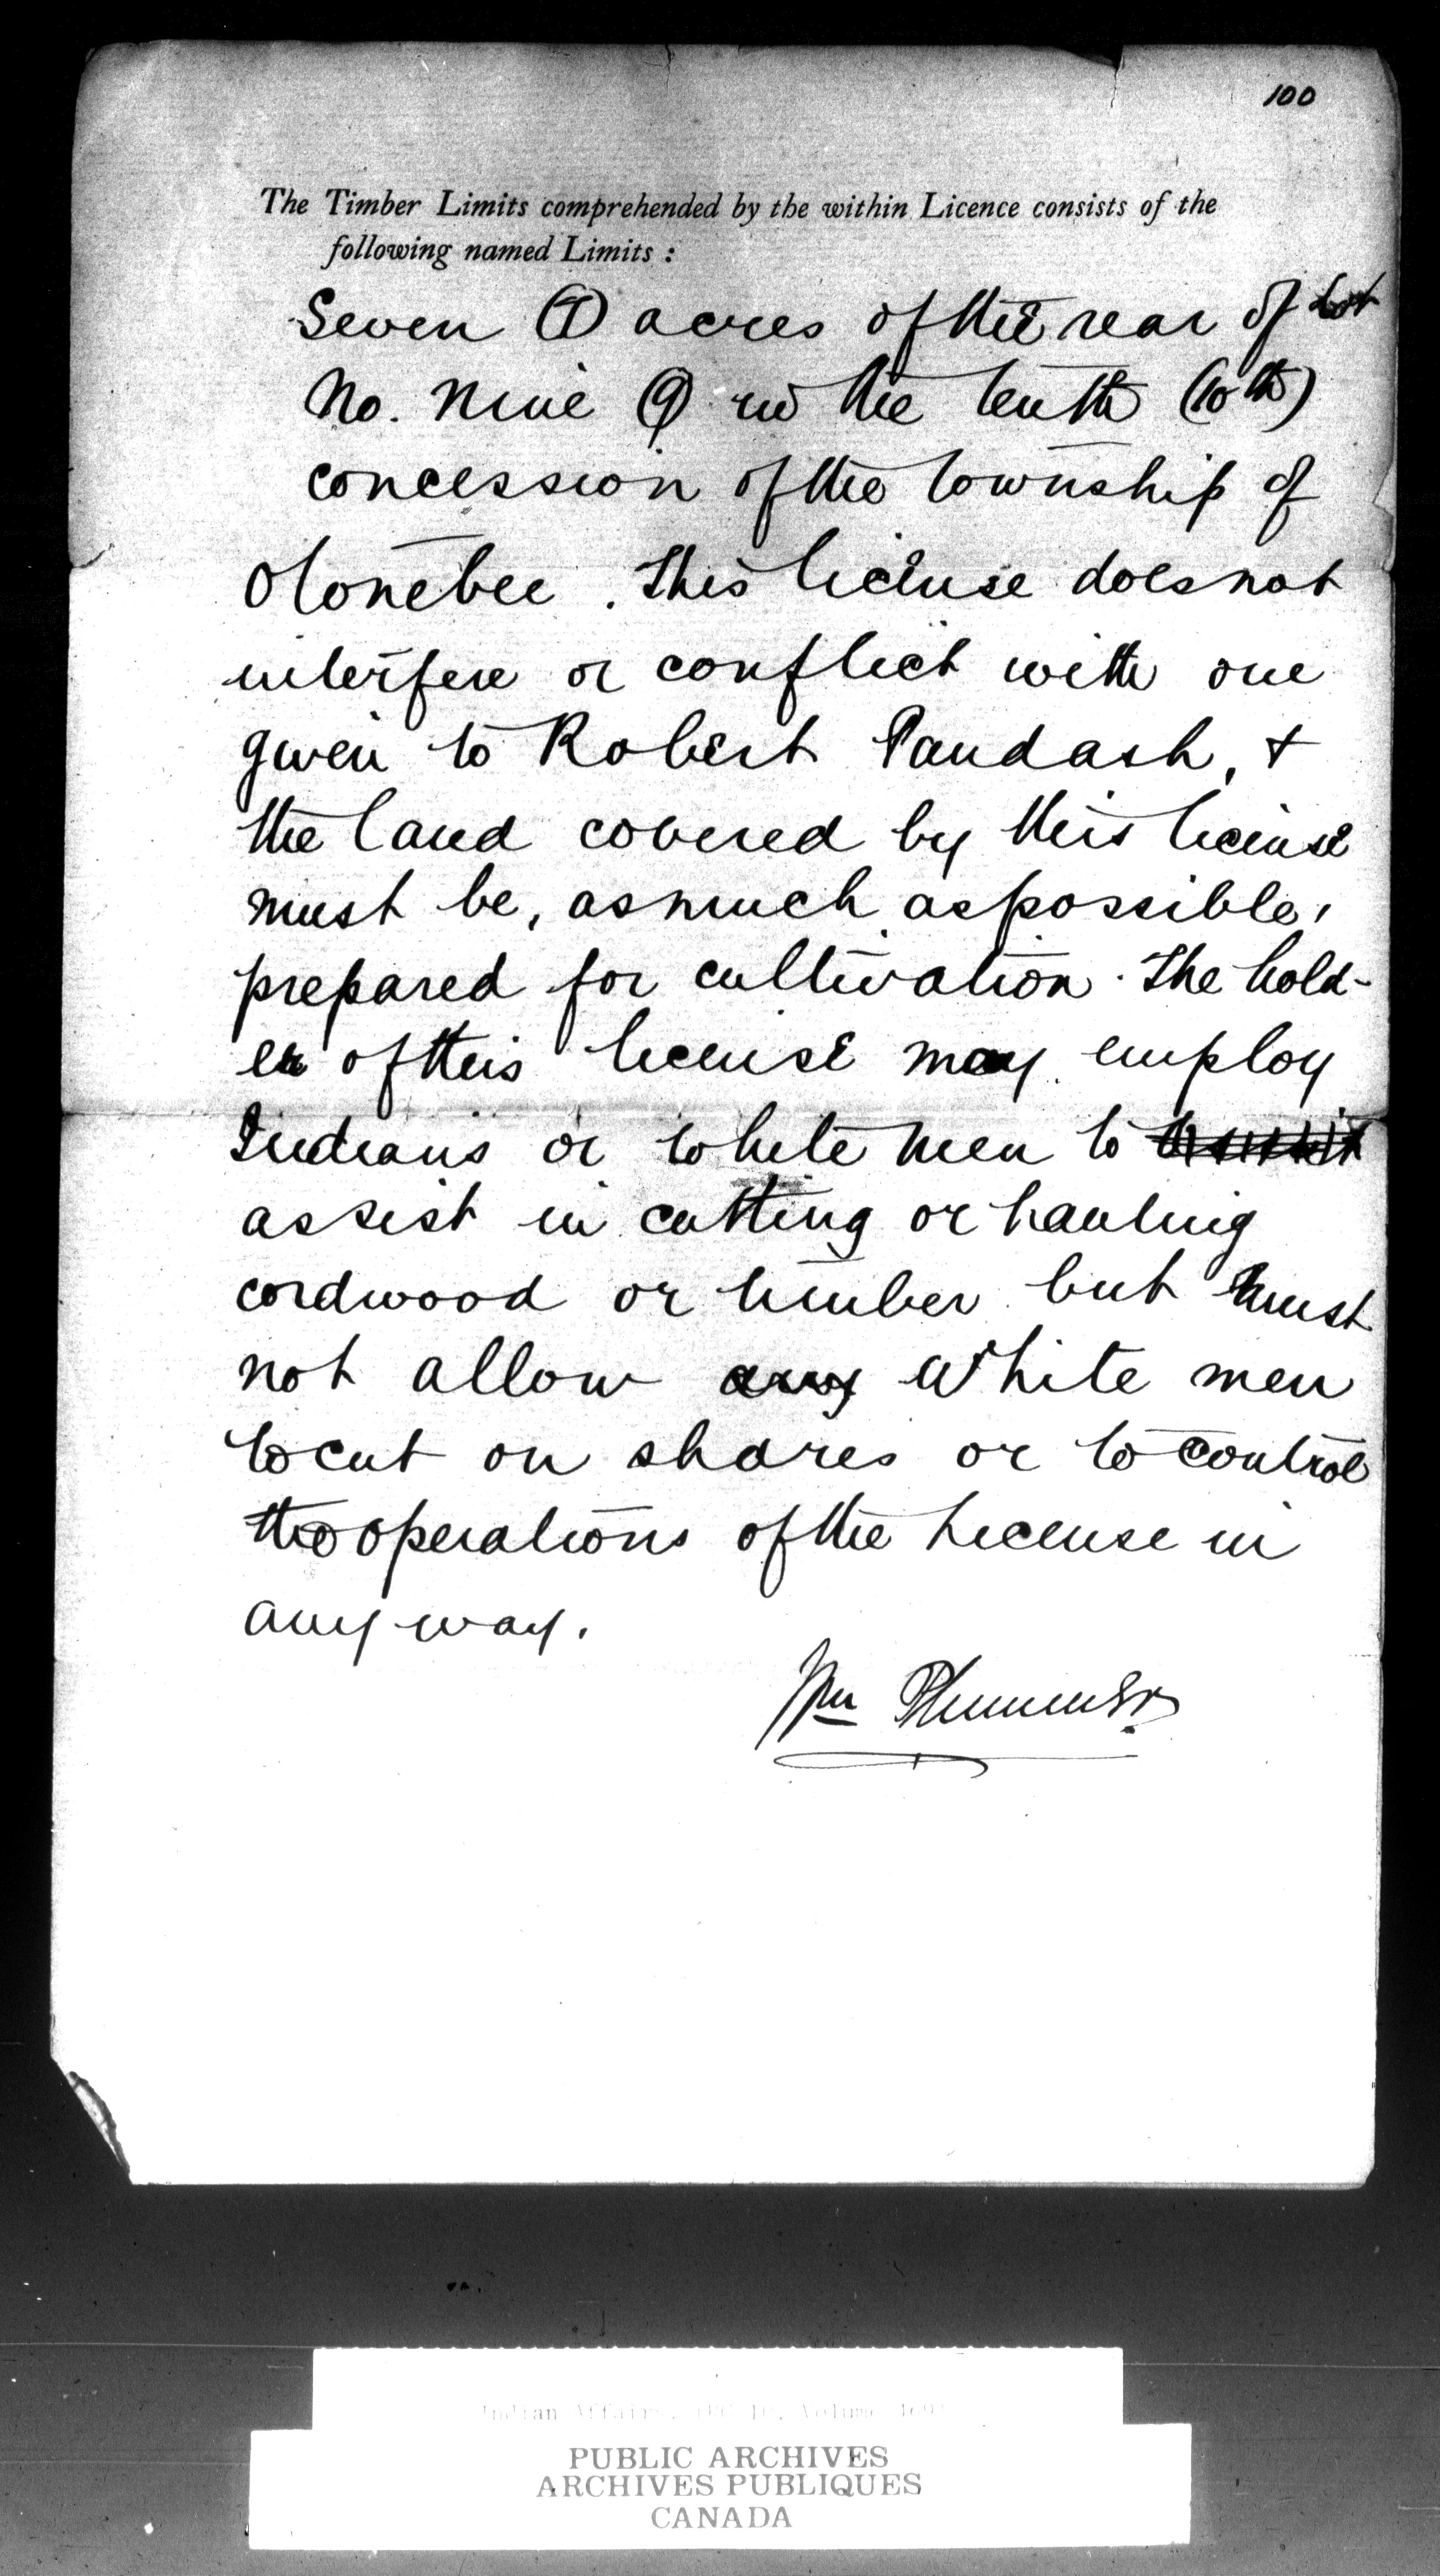 100
The Timber Limits comprehended by the within Licence consists of the
following named Limits :
Seven (7) acres of the rear of Lot
No. Nine (9) in the tenth (10th)
concession of the township of
Otonebee. This license does not
interfere or conflict with one
given to Robert Paudash, +
the land covered by this license
must be, as much as possible,
prepared for cultivation. The hold-
er of this license may employ
Indians or white men to
assist in cutting or hauling
cordwood or timber but must
not allow any White men
to cut on shares or to control
the operations of the License in
any way.
Wm Plummer
Indian Affairs. (RG 10, Volume
PUBLIC ARCHIVES
ARCHIVES PUBLIQUES
CANADA